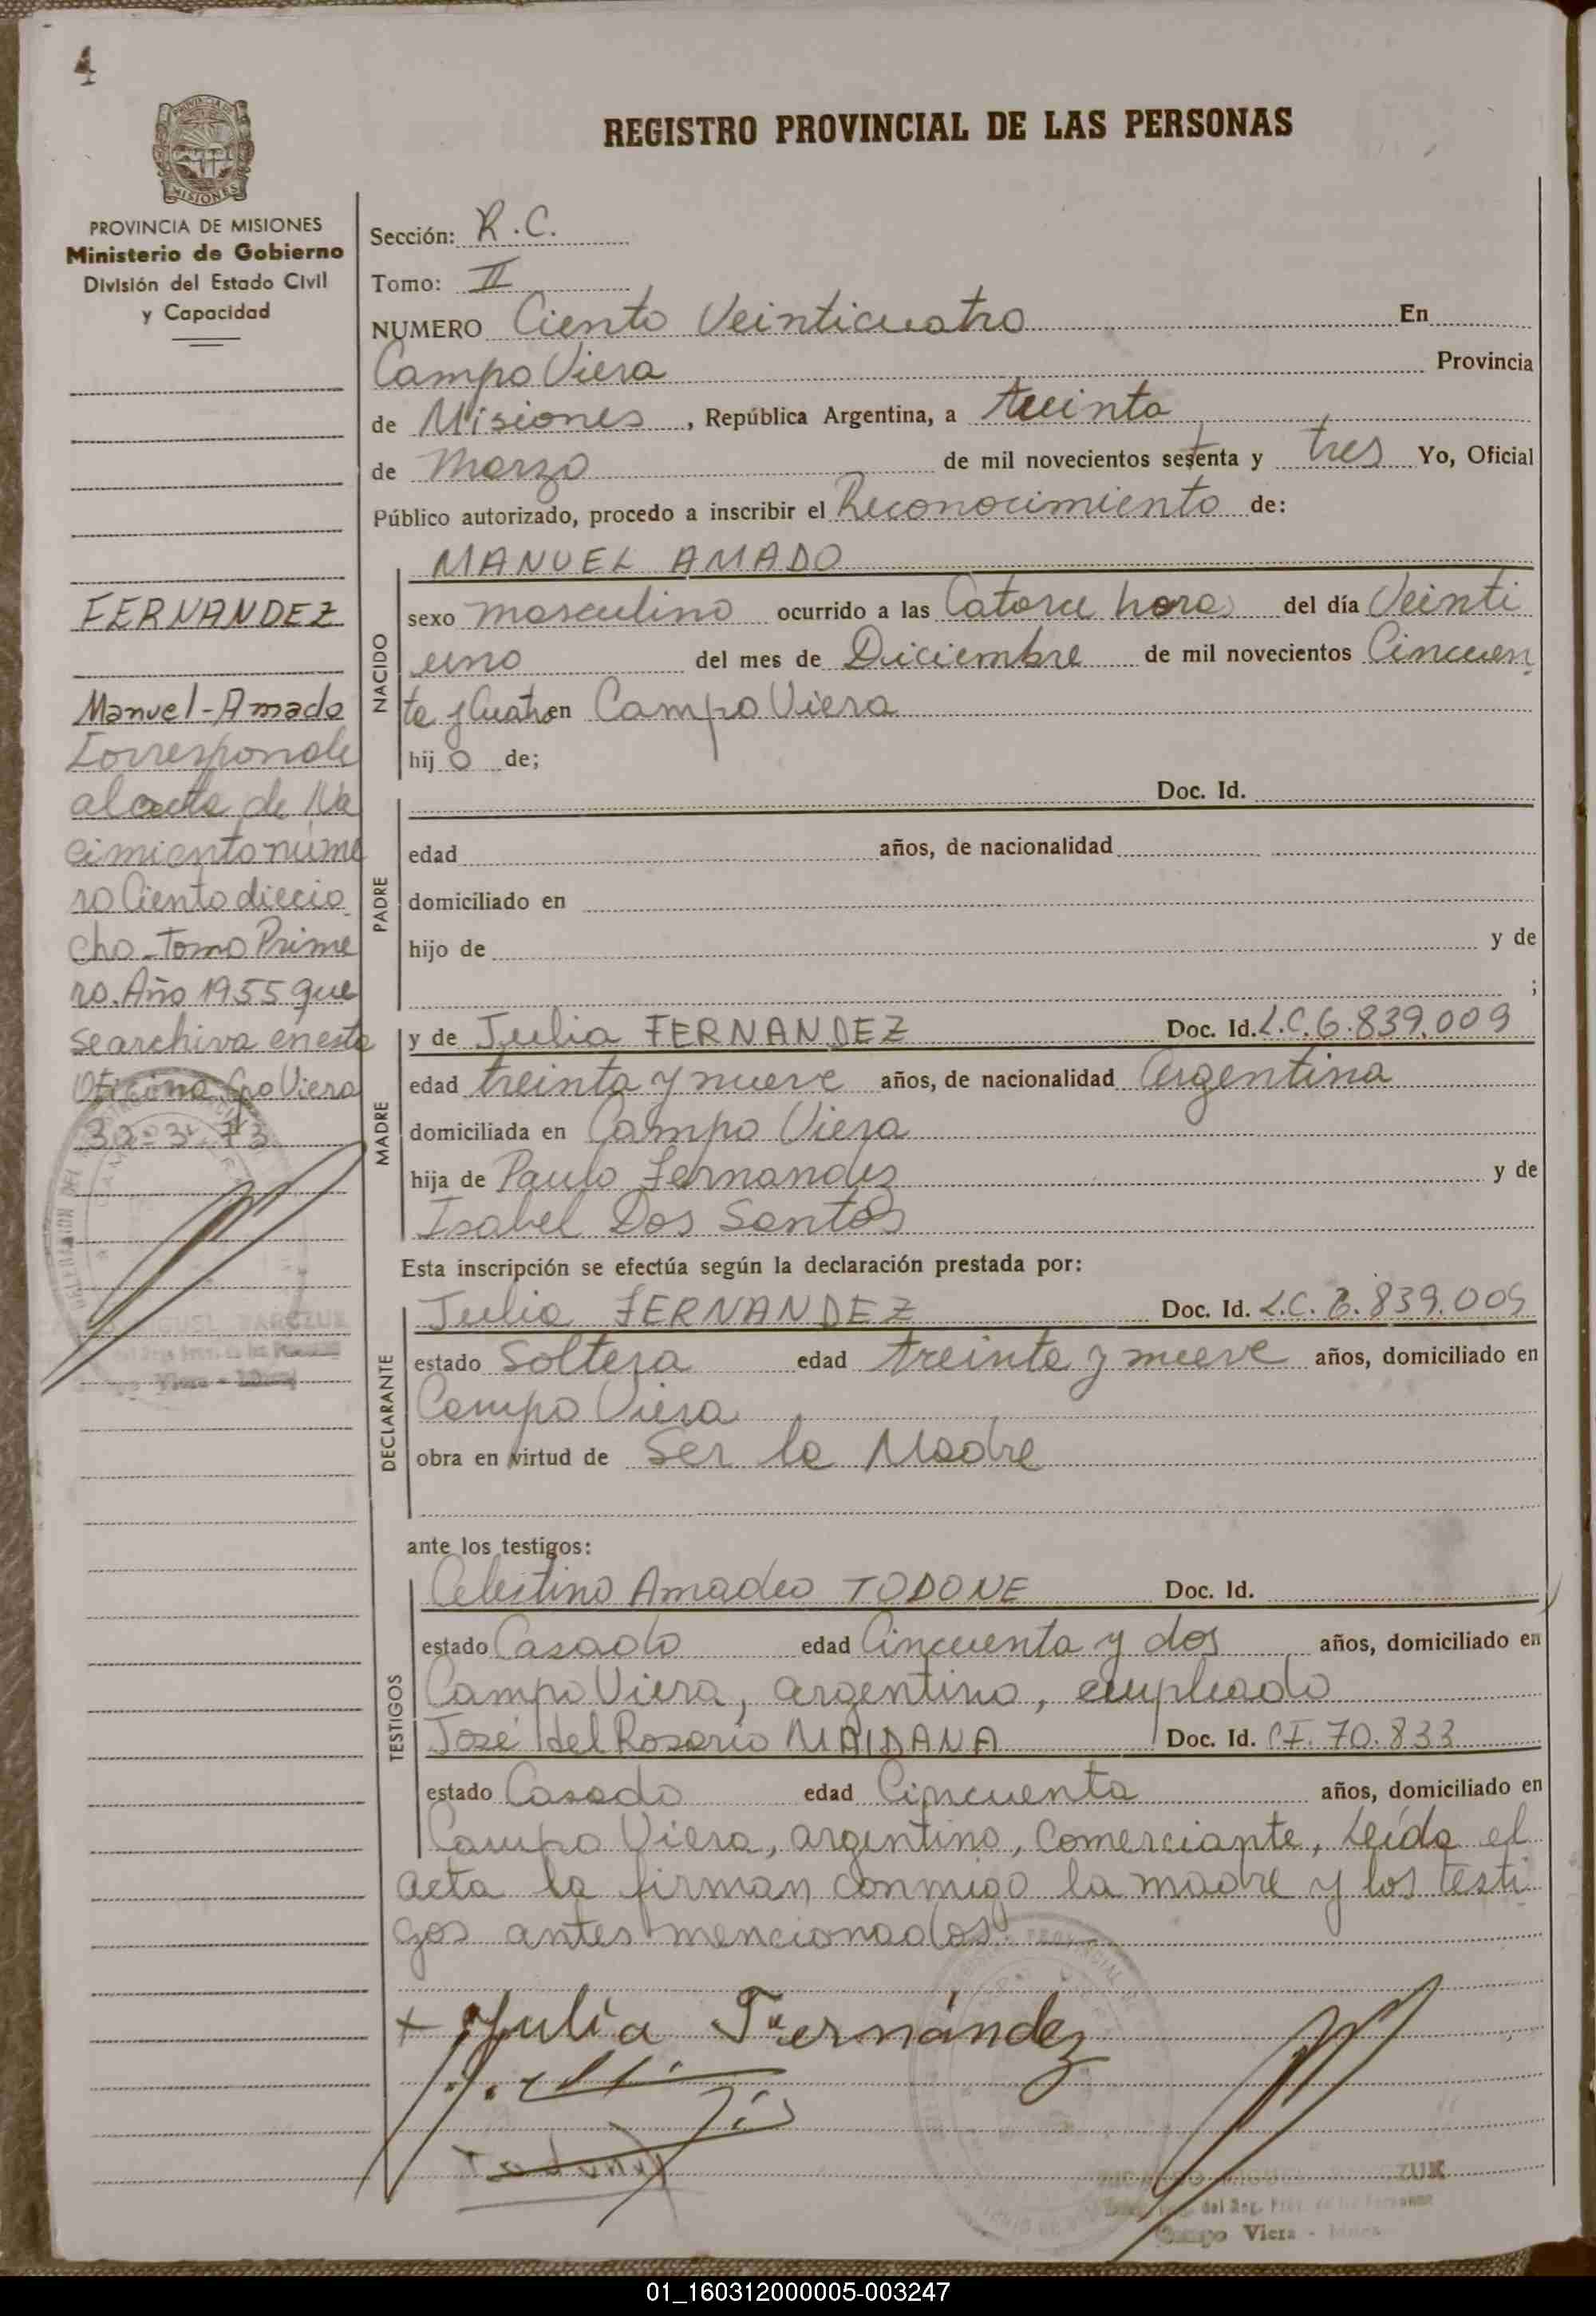 4
REGISTRO PROVINCIAL DE LAS PERSONAS
PROVINCIA DE MISIONES
Ministerio de Gobierno
División del Estado Civil
y Capacidad
FERNANDEZ
Manuel-Amado
Corresponde
al acta de Na
cimiento núme
ro Ciento diecio
cho-Tomo Prime
ro. Año 1955 que
se archiva en esta
Oficina Cpo Viera
30-3-73
Sección: R.C.
Tomo: II
NUMERO Ciento Veinticuatro En
Campo Viera Provincia
de Misiones, República Argentina, a treinta
de Marzo de mil novecientos setenta y tres Yo, Oficial
Público autorizado, procedo a inscribir el Reconocimiento de:
NACIDO
MANUEL AMADO
sexo masculino ocurrido a las Catorce horas del día Veinti
uno del mes de Diciembre de mil novecientos Cincuen
ta y Cuatro en Campo Viera
hij o de;
PADRE
Doc. Id.
edad años, de nacionalidad
domiciliado en
hijo de y de
;
MADRE
y de Julia FERNANDEZ Doc. Id. L.C. 6.839.009
edad treinta y nueve años, de nacionalidad Argentina
domiciliada en Campo Viera
hija de Paulo Fernandez y de
Isabel Dos Santos
Esta inscripción se efectúa según la declaración prestada por:
DECLARANTE
Julia FERNANDEZ Doc. Id. L.C. 6.839.009
estado Soltera edad treinta y nueve años, domiciliado en
Campo Viera
obra en virtud de Ser la Madre
ante los testigos:
TESTIGOS
Celestino Amadeo TODONE Doc. Id.
estado Casado edad Cincuenta y dos años, domiciliado en
Campo Viera, argentino, empleado
José del Rosario MAIDANA Doc. Id. CI. 70.833
estado Casado edad Cincuenta años, domiciliado en
Campo Viera, argentino, Comerciante, Leída el
acta la firman conmigo la madre y los testi
gos antes mencionados
+ Julia Fernández
Campo Viera
01_160312000005-003247